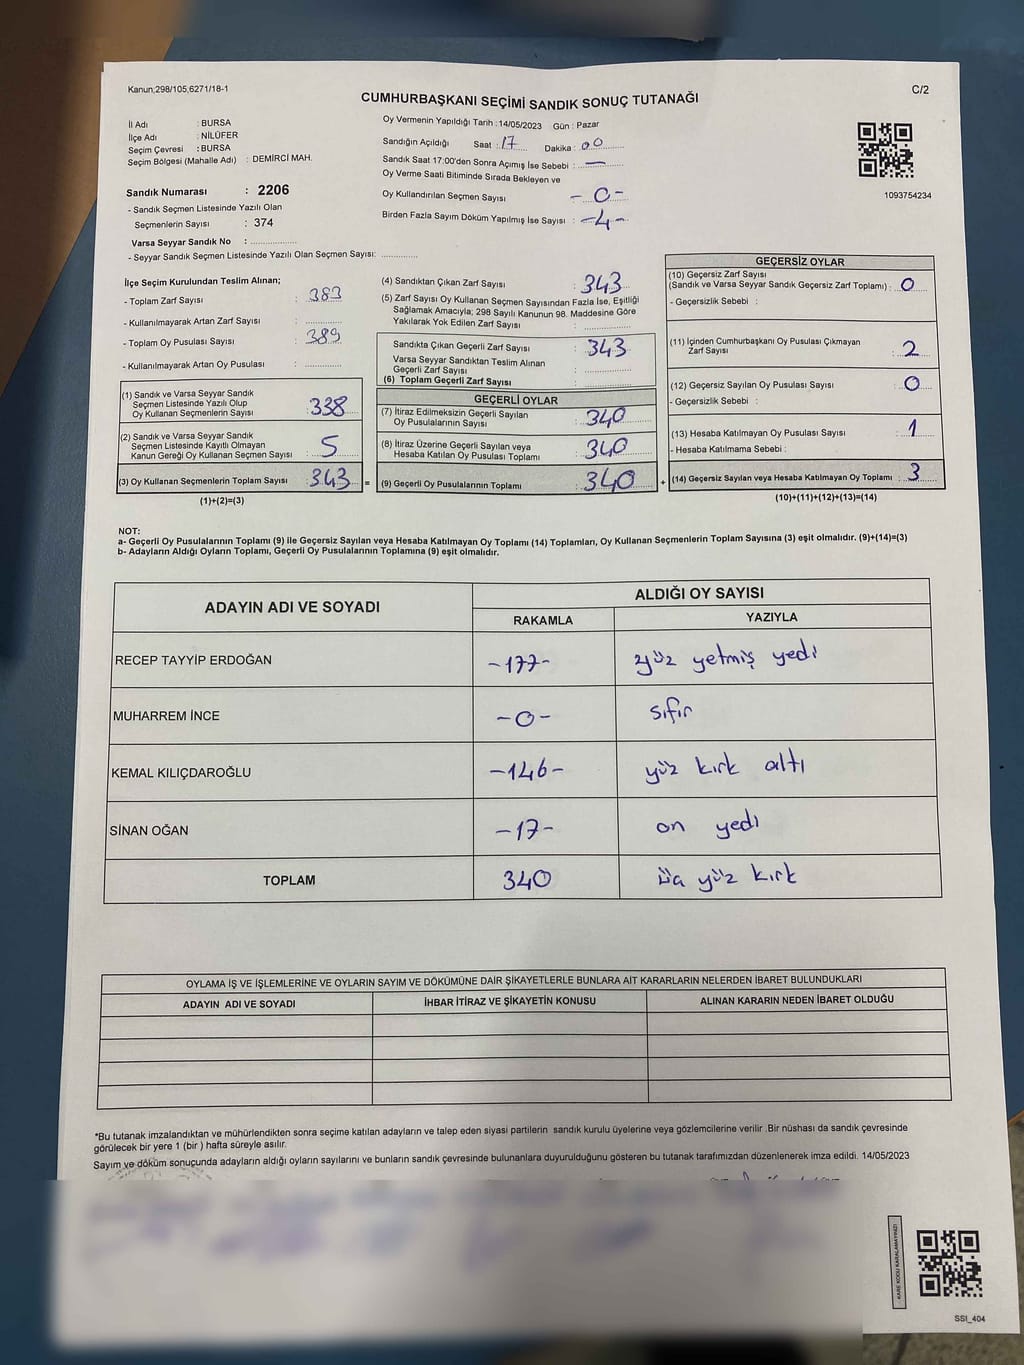 Kanun;298/105,6271/18-1
C/2
CUMHURBAŞKANI SEÇİMİ SANDIK SONUÇ TUTANAĞI
İl Adı : BURSA
İlçe Adı : NİLÜFER
Seçim Çevresi : BURSA
Seçim Bölgesi (Mahalle Adı) : DEMİRCİ MAH.
Sandık Numarası : 2206
- Sandık Seçmen Listesinde Yazılı Olan
Seçmenlerin Sayısı : 374
Varsa Seyyar Sandık No : ..................
- Seyyar Sandık Seçmen Listesinde Yazılı Olan Seçmen Sayısı: ..............
Oy Vermenin Yapıldığı Tarih :14/05/2023 Gün : Pazar
Sandığın Açıldığı Saat : 17 Dakika : 00
Sandık Saat 17:00'den Sonra Açımış İse Sebebi : —
Oy Verme Saati Bitiminde Sırada Bekleyen ve
Oy Kullandırılan Seçmen Sayısı : -0-
Birden Fazla Sayım Döküm Yapılmış İse Sayısı : -4-
1093754234
İlçe Seçim Kurulundan Teslim Alınan;
- Toplam Zarf Sayısı : 383
- Kullanılmayarak Artan Zarf Sayısı : ..............
- Toplam Oy Pusulası Sayısı : 389
- Kullanılmayarak Artan Oy Pusulası : ..............
(1) Sandık ve Varsa Seyyar Sandık
Seçmen Listesinde Yazılı Olup
Oy Kullanan Seçmenlerin Sayısı : 338
(2) Sandık ve Varsa Seyyar Sandık
Seçmen Listesinde Kayıtlı Olmayan
Kanun Gereği Oy Kullanan Seçmen Sayısı : 5
(3) Oy Kullanan Seçmenlerin Toplam Sayısı : 343 =
(1)+(2)=(3)
(4) Sandıktan Çıkan Zarf Sayısı : 343
(5) Zarf Sayısı Oy Kullanan Seçmen Sayısından Fazla İse, Eşitliği
Sağlamak Amacıyla; 298 Sayılı Kanunun 98. Maddesine Göre
Yakılarak Yok Edilen Zarf Sayısı : ..............
Sandıkta Çıkan Geçerli Zarf Sayısı : 343
Varsa Seyyar Sandıktan Teslim Alınan
Geçerli Zarf Sayısı : ..............
(6) Toplam Geçerli Zarf Sayısı : ..............
GEÇERLİ OYLAR
(7) İtiraz Edilmeksizin Geçerli Sayılan
Oy Pusulalarının Sayısı : 340
(8) İtiraz Üzerine Geçerli Sayılan veya
Hesaba Katılan Oy Pusulası Toplamı : 340
(9) Geçerli Oy Pusulalarının Toplamı : 340 +
GEÇERSİZ OYLAR
(10) Geçersiz Zarf Sayısı
(Sandık ve Varsa Seyyar Sandık Geçersiz Zarf Toplamı) : 0
- Geçersizlik Sebebi :
(11) İçinden Cumhurbaşkanı Oy Pusulası Çıkmayan
Zarf Sayısı : 2
(12) Geçersiz Sayılan Oy Pusulası Sayısı : 0
- Geçersizlik Sebebi :
(13) Hesaba Katılmayan Oy Pusulası Sayısı : 1
- Hesaba Katılmama Sebebi :
(14) Geçersiz Sayılan veya Hesaba Katılmayan Oy Toplamı : 3
(10)+(11)+(12)+(13)=(14)
NOT:
a- Geçerli Oy Pusulalarının Toplamı (9) ile Geçersiz Sayılan veya Hesaba Katılmayan Oy Toplamı (14) Toplamları, Oy Kullanan Seçmenlerin Toplam Sayısına (3) eşit olmalıdır. (9)+(14)=(3)
b- Adayların Aldığı Oyların Toplamı, Geçerli Oy Pusulalarının Toplamına (9) eşit olmalıdır.
ADAYIN ADI VE SOYADI ALDIĞI OY SAYISI
RAKAMLA YAZIYLA
RECEP TAYYİP ERDOĞAN -177- yüz yetmiş yedi
MUHARREM İNCE -0- sıfır
KEMAL KILIÇDAROĞLU -146- yüz kırk altı
SİNAN OĞAN -17- on yedi
TOPLAM 340 üç yüz kırk
OYLAMA İŞ VE İŞLEMLERİNE VE OYLARIN SAYIM VE DÖKÜMÜNE DAİR ŞİKAYETLERLE BUNLARA AİT KARARLARIN NELERDEN İBARET BULUNDUKLARI
ADAYIN ADI VE SOYADI İHBAR İTİRAZ VE ŞİKAYETİN KONUSU ALINAN KARARIN NEDEN İBARET OLDUĞU
*Bu tutanak imzalandıktan ve mühürlendikten sonra seçime katılan adayların ve talep eden siyasi partilerin sandık kurulu üyelerine veya gözlemcilerine verilir .Bir nüshası da sandık çevresinde
görülecek bir yere 1 (bir ) hafta süreyle asılır.
Sayım ve döküm sonuçunda adayların aldığı oyların sayılarını ve bunların sandık çevresinde bulunanlara duyurulduğunu gösteren bu tutanak tarafımızdan düzenlenerek imza edildi. 14/05/2023
KARE KODU KARALAMAYINIZ!
SSI_404